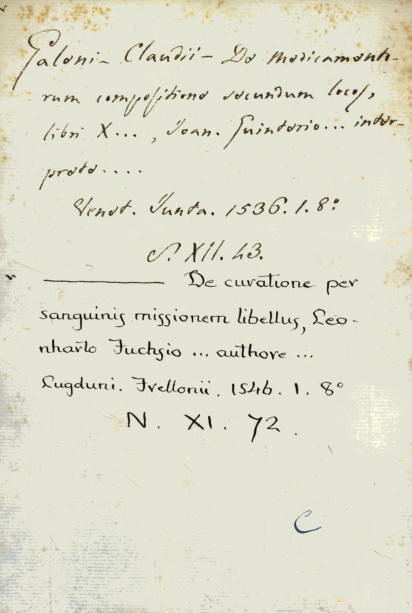 Galeni - Claudii - De medicamento-
rum compositione secundum locos,
libri X..., Joan. Guinterio... inter-
prete....
Venet. Junta. 1536. 1. 8º
S. XII. 43.
——— De curatione per
sanguinis missionem libellus, Leo-
nharto Fuchsio ... authore ...
Lugduni. Frellonii. 1546. 1. 8º
N. XI. 72.
C